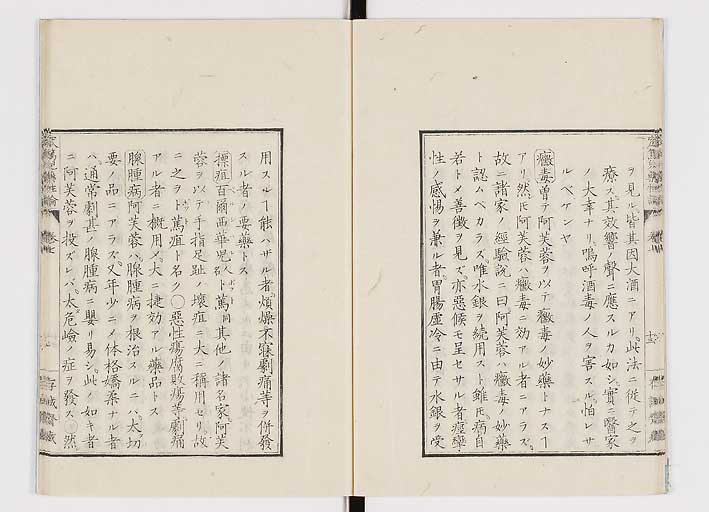 ヲ見ル皆其因大酒ニアリ此法ニ従テ之ヲ
療ス其效響ノ聲ニ應スルカ如シ實ニ醫家
ノ大幸ナリ嗚呼酒毒ノ人ヲ害スル怕レサ
ルベケンヤ
黴毒曽テ阿芙蓉ヲ以テ黴毒ノ妙藥トナスヿ
アリ然𪜈阿芙蓉ハ黴毒ニ効アル者ニアラズ
故ニ諸家ノ經驗説ニ曰阿芙蓉ハ黴毒ノ妙藥
ト認ムベカラズ唯水銀ヲ続用スト雖𪜈病自
若トメ善徴ヲ見ズ亦惡候モ呈セサル者痙攣
性ノ感惕ヲ兼ル者胃腸虚冷ニ由テ水銀ヲ受
用スルヿ能ハザル者煩燥不寐劇痛等ヲ併發
スル者ノ要藥トス
瘭疽百爾西華児人ト萬同其他ノ諸名家阿芙
蓉ヲ以テ手指足趾ノ壊疽ニ大ニ稱用セリ故
ニ之ヲト萬疽ト名ク〇惡性瘍腐敗瘍等劇痛
アル者ニ概用メ大ニ捷効アル藥品トス
腺腫病阿芙蓉ハ腺腫病ヲ根治スルニハ太切
要ノ品ニアラズ又年少ニメ体格嬌柔ナル者
ハ通常劇甚ノ腺腫病ニ嬰リ易シ此ノ如キ者
ニ阿芙蓉ヲ投ズレバ太危嶮ノ症ヲ發ス然